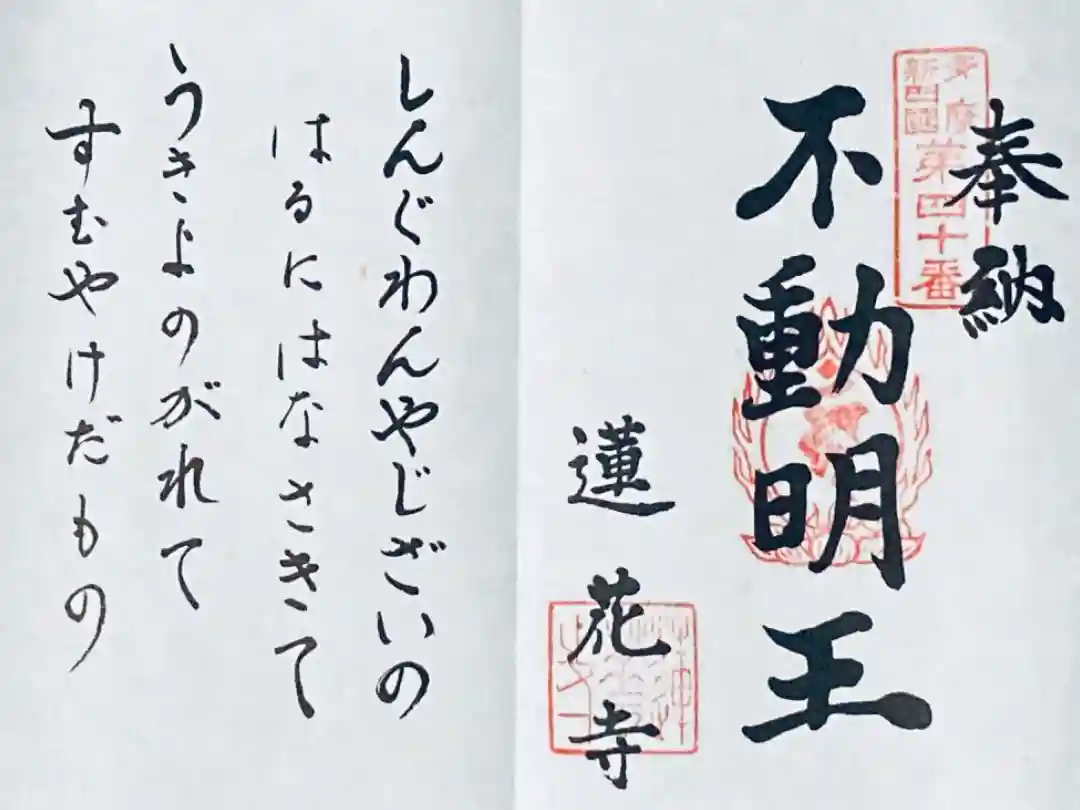 奉納
多摩
新四國
第四十番
不動明王
蓮花寺
しんぐわんやじざいの
はるにはなさきて
うきよのがれて
すむやけだもの